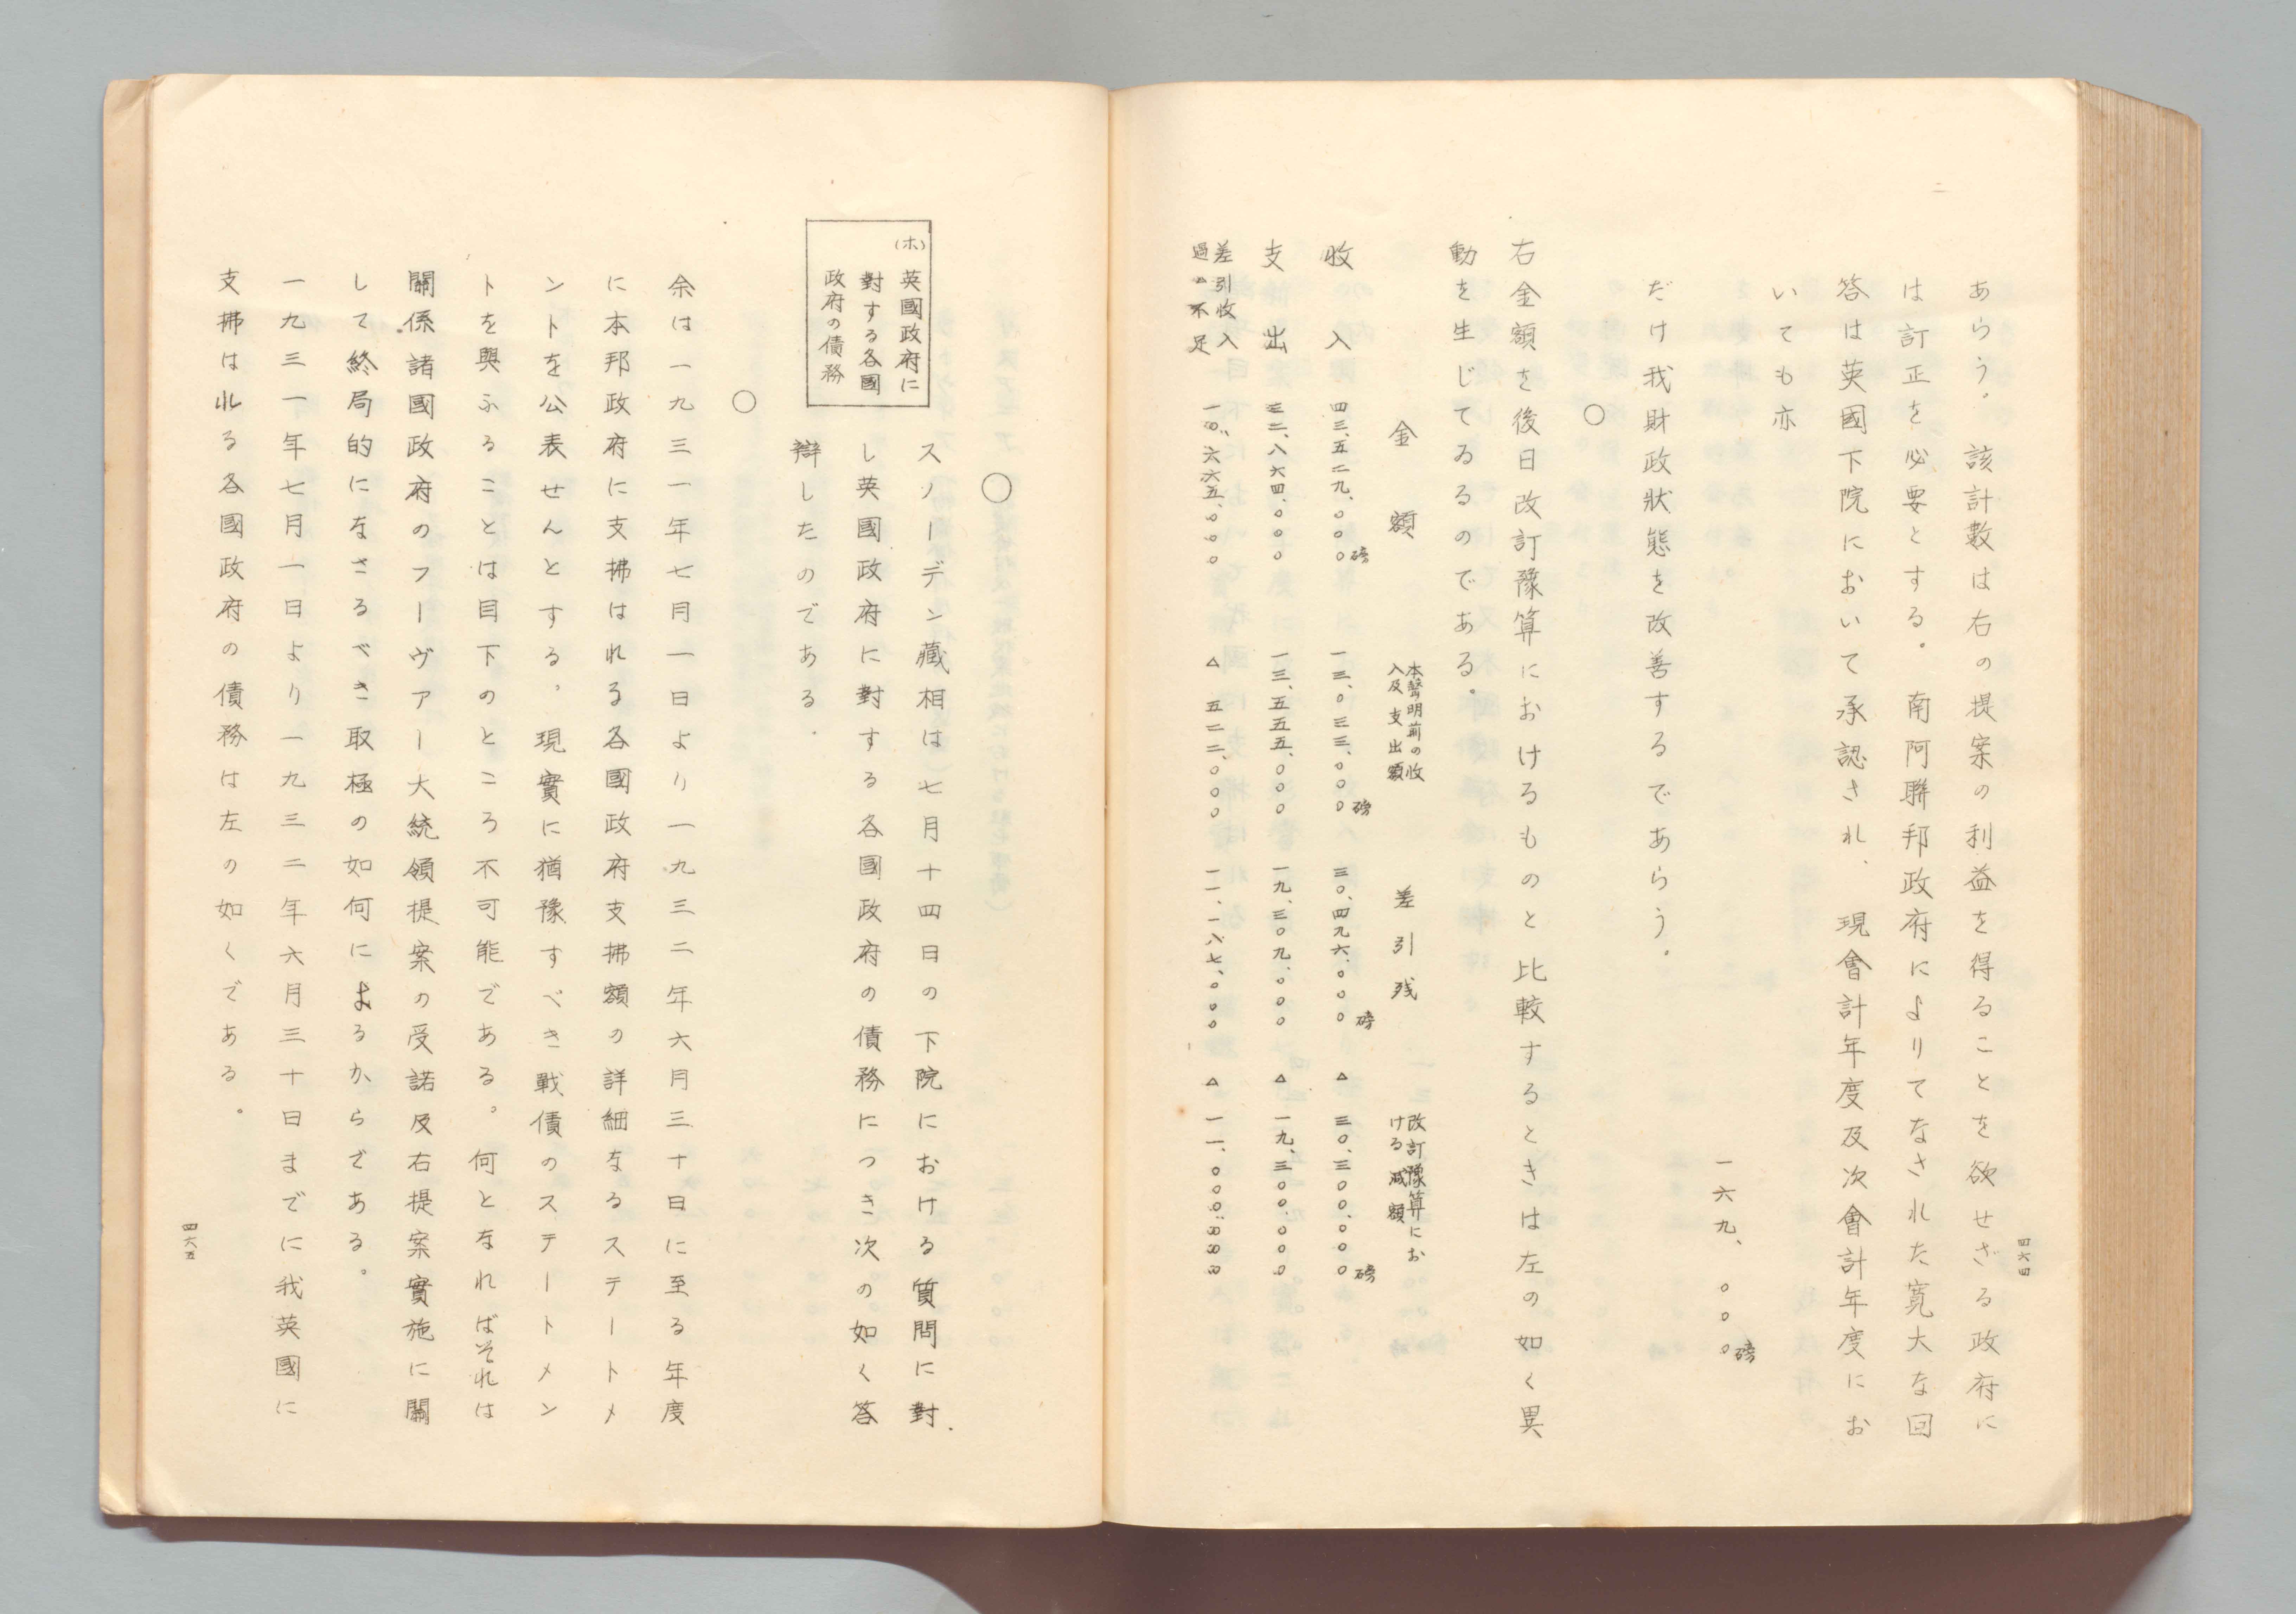 四六四
あらう。該計數は右の提案の利益を得ることを欲せざる政府に
は訂正を必要とする。南阿聯邦政府によりてなされた寛大な回
答は英國下院において承認され、現會計年度及次會計年度にお
いても亦
一六九、〇〇〇磅
だけ我財政狀態を改善するであらう。
〇
右金額を後日改訂豫算におけるものと比較するときは左の如く異
動を生じてゐるのである。
金額 本聲明前の收入及支出額 差引残 改訂豫算における減額
收入 四三、五二九、〇〇〇磅 一三、〇三三、〇〇〇磅 三〇、四九六、〇〇〇磅 △三〇、三〇〇、〇〇〇磅
支出 三二、八六四、〇〇〇 一三、五五五、〇〇〇 一九、三〇九、〇〇〇 △一九、三〇〇、〇〇〇
差引收入過△不足 一〇、六六五、〇〇〇 △五二二、〇〇〇 一一、一八七、〇〇〇 △一一、〇〇〇、〇〇〇
〇
(ホ)英國政府に
對する各國
政府の債務
スノーデン藏相は七月十四日の下院における質問に對
し英國政府に對する各國政府の債務につき次の如く答
辯したのである。
〇
余は一九三一年七月一日より一九三二年六月三十日に至る年度
に本邦政府に支拂はれる各國政府支拂額の詳細なるステートメ
ントを公表せんとする。現實に猶豫すべき戰債のステートメン
トを與ふることは目下のところ不可能である。何となればそれは
關係諸國政府のフーヴァー大統領提案の受諾及右提案實施に關
して終局的になさるべき取極の如何によるからである。
一九三一年七月一日より一九三二年六月三十日までに我英國に
支拂はれる各國政府の債務は左の如くである。
四六五